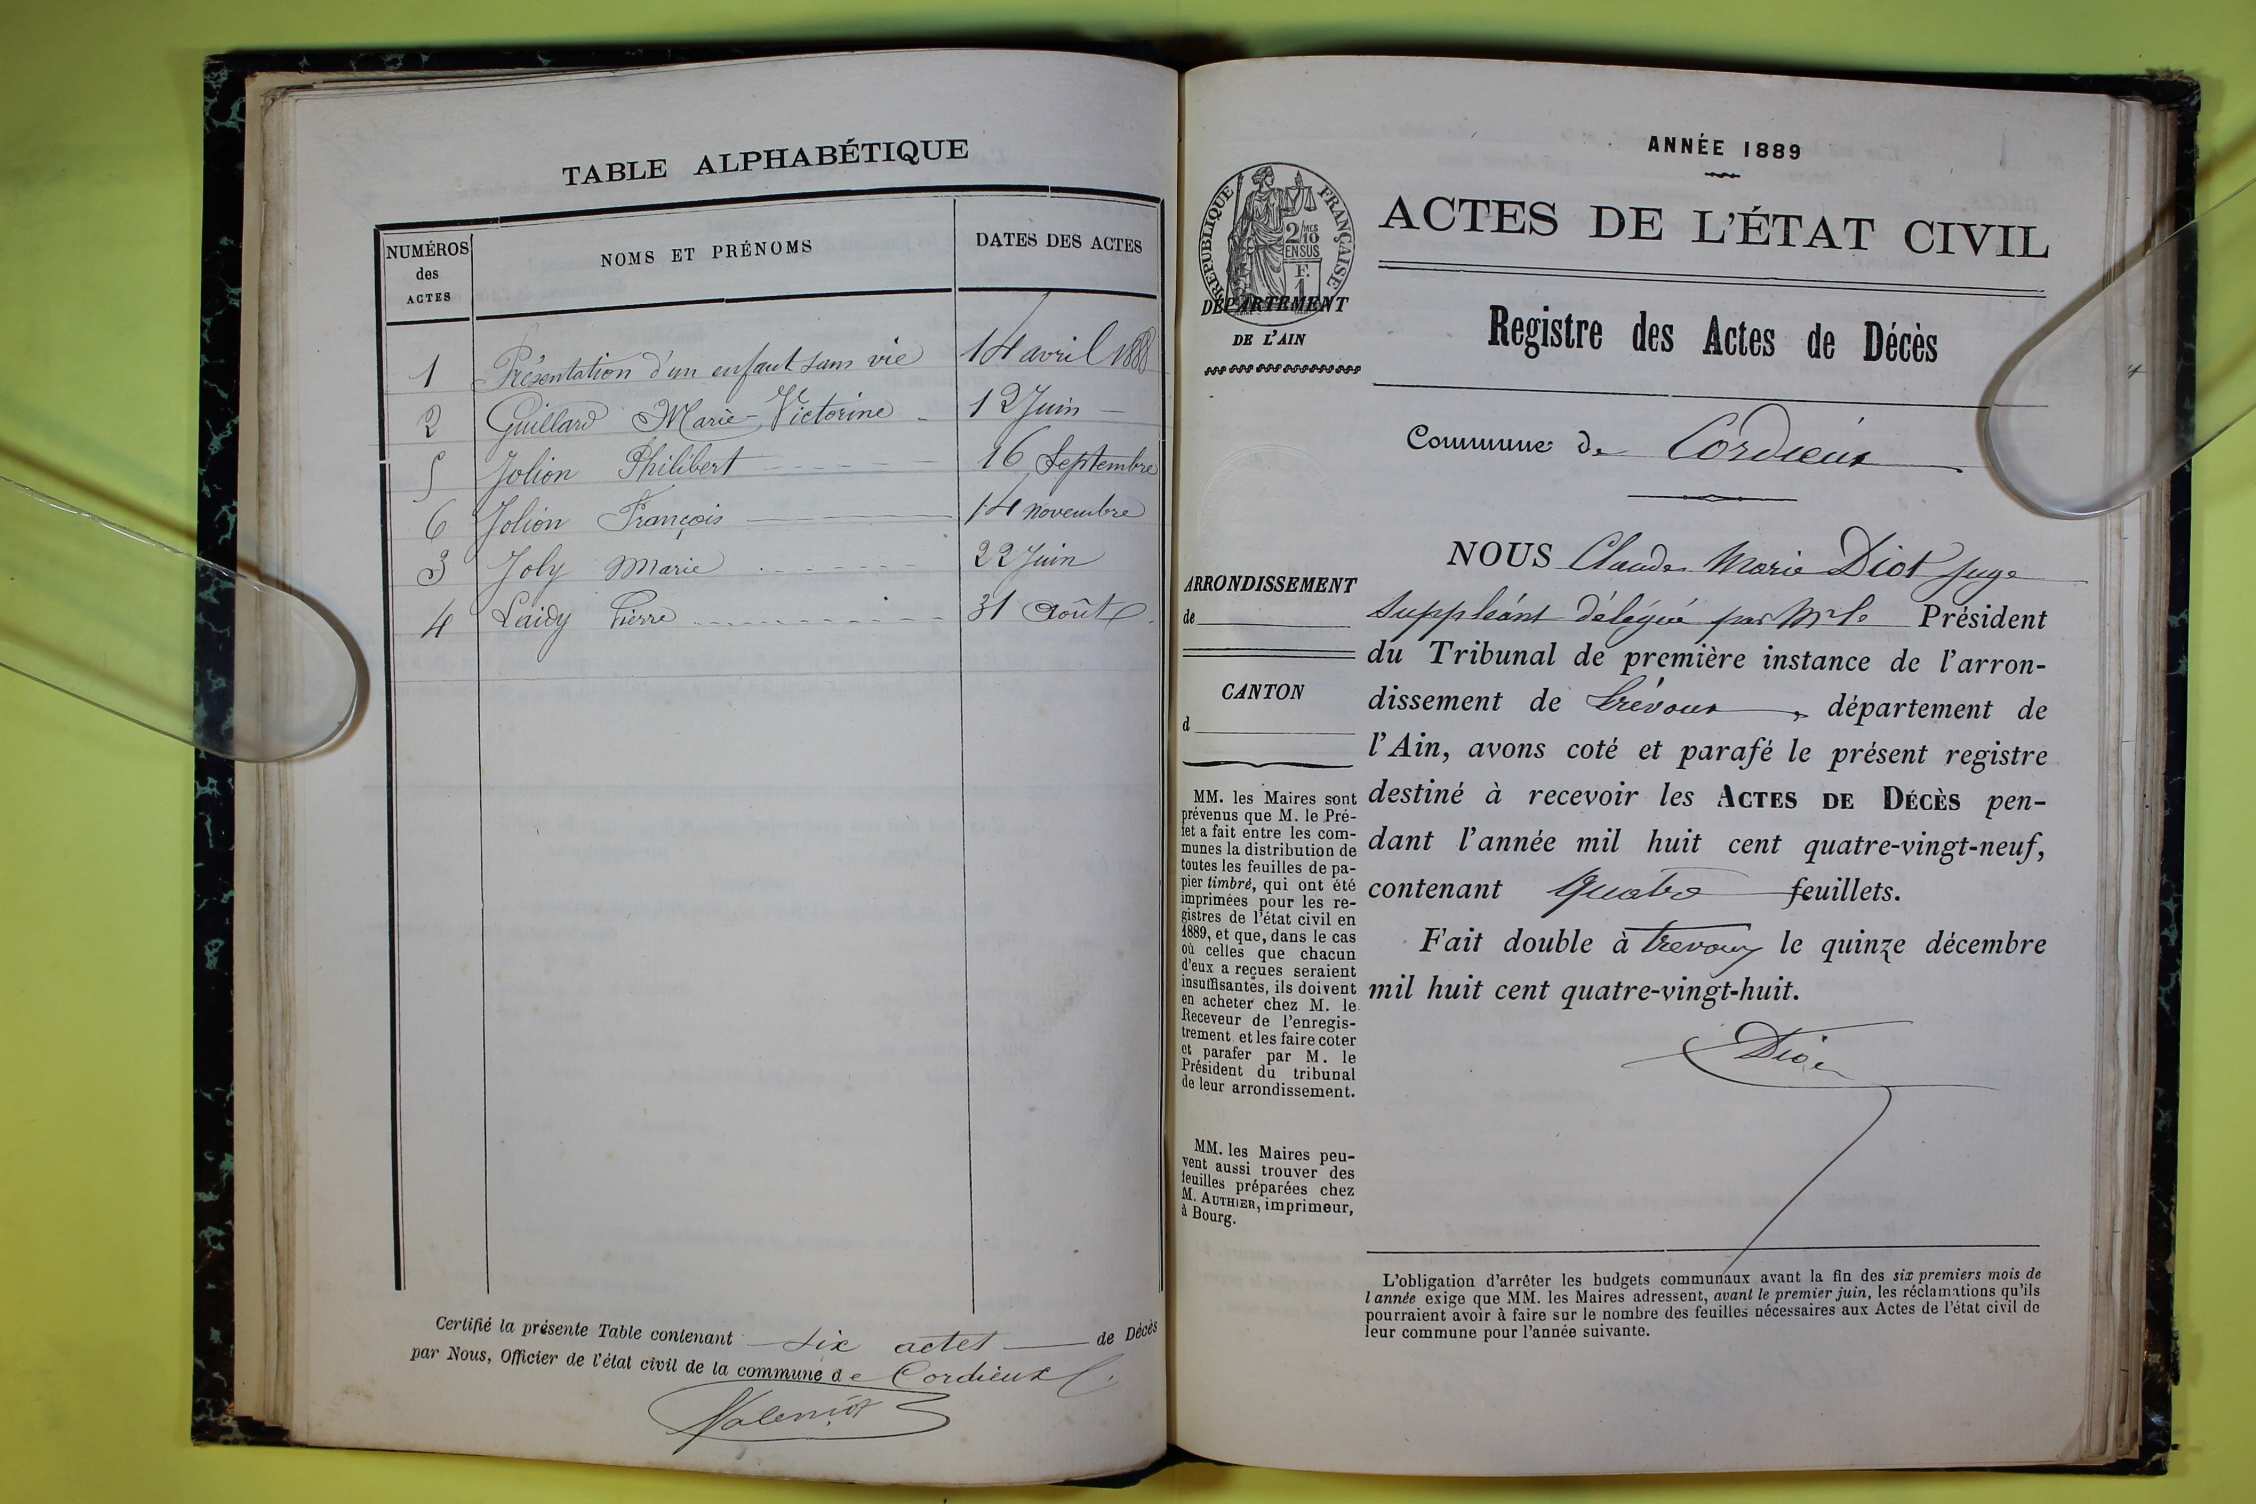 TABLE ALPHABÉTIQUE
NUMÉROS
des
ACTES
NOMS ET PRÉNOMS
DATES DES ACTES
1 Présentation d'un enfant sans vie 14 avril 1888
2 Guillard Marie-Victorine 12 Juin
5 Jolion Philibert 16 Septembre
6 Jolion François 14 novembre
3 Joly Marie 22 Juin
4 Laidy Pierre 31 Août
Certifié la présente Table contenant six actes de Décès
par Nous, Officier de l'état civil de la commune de Cordieux
ANNÉE 1889
RÉPUBLIQUE FRANÇAISE
2/10 MES
EN SUS
F.
1
DÉPARTEMENT
DE L'AIN
ACTES DE L'ÉTAT CIVIL
Registre des Actes de Décès
Commune de Cordieux
ARRONDISSEMENT
de
CANTON
d
MM. les Maires sont
prévenus que M. le Pré-
fet a fait entre les com-
munes la distribution de
toutes les feuilles de pa-
pier timbré, qui ont été
imprimées pour les re-
gistres de l'état civil en
1889, et que, dans le cas
où celles que chacun
d'eux a reçues seraient
insuffisantes, ils doivent
en acheter chez M. le
Receveur de l'enregis-
trement et les faire coter
et parafer par M. le
Président du tribunal
de leur arrondissement.
MM. les Maires peu-
vent aussi trouver des
feuilles préparées chez
M. AUTHIER, imprimeur,
à Bourg.
NOUS Claude Marie Diot Juge
Suppléant délégué par Mr le Président
du Tribunal de première instance de l'arron-
dissement de Trévoux, département de
l'Ain, avons coté et parafé le présent registre
destiné à recevoir les ACTES DE DÉCÈS pen-
dant l'année mil huit cent quatre-vingt-neuf,
contenant quatre feuillets.
Fait double à Trevoux le quinze décembre
mil huit cent quatre-vingt-huit.
Diot
L'obligation d'arrêter les budgets communaux avant la fin des six premiers mois de
l'année exige que MM. les Maires adressent, avant le premier juin, les réclamations qu'ils
pourraient avoir à faire sur le nombre des feuilles nécessaires aux Actes de l'état civil de
leur commune pour l'année suivante.